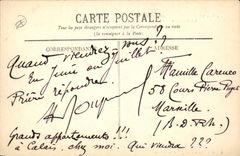 CARTE POSTALE
Tous les pays étrangers n'acceptent pas la Correspondance au recto.
(Se renseigner à la Poste).
CORRESPONDANCE
ADRESSE
Quand viendrez vous ??
En Juin ou Juillet?
Prière répondre
Famille
58 Cours Pierre Puget
Marseille.
(B. D. Rh.)
Grands appartements !!!
à Calais, chez moi. Qui viendra ???